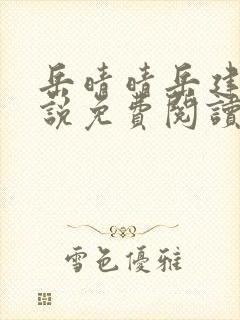 岳晴晴岳建
說免費閱讀
雪色優雅